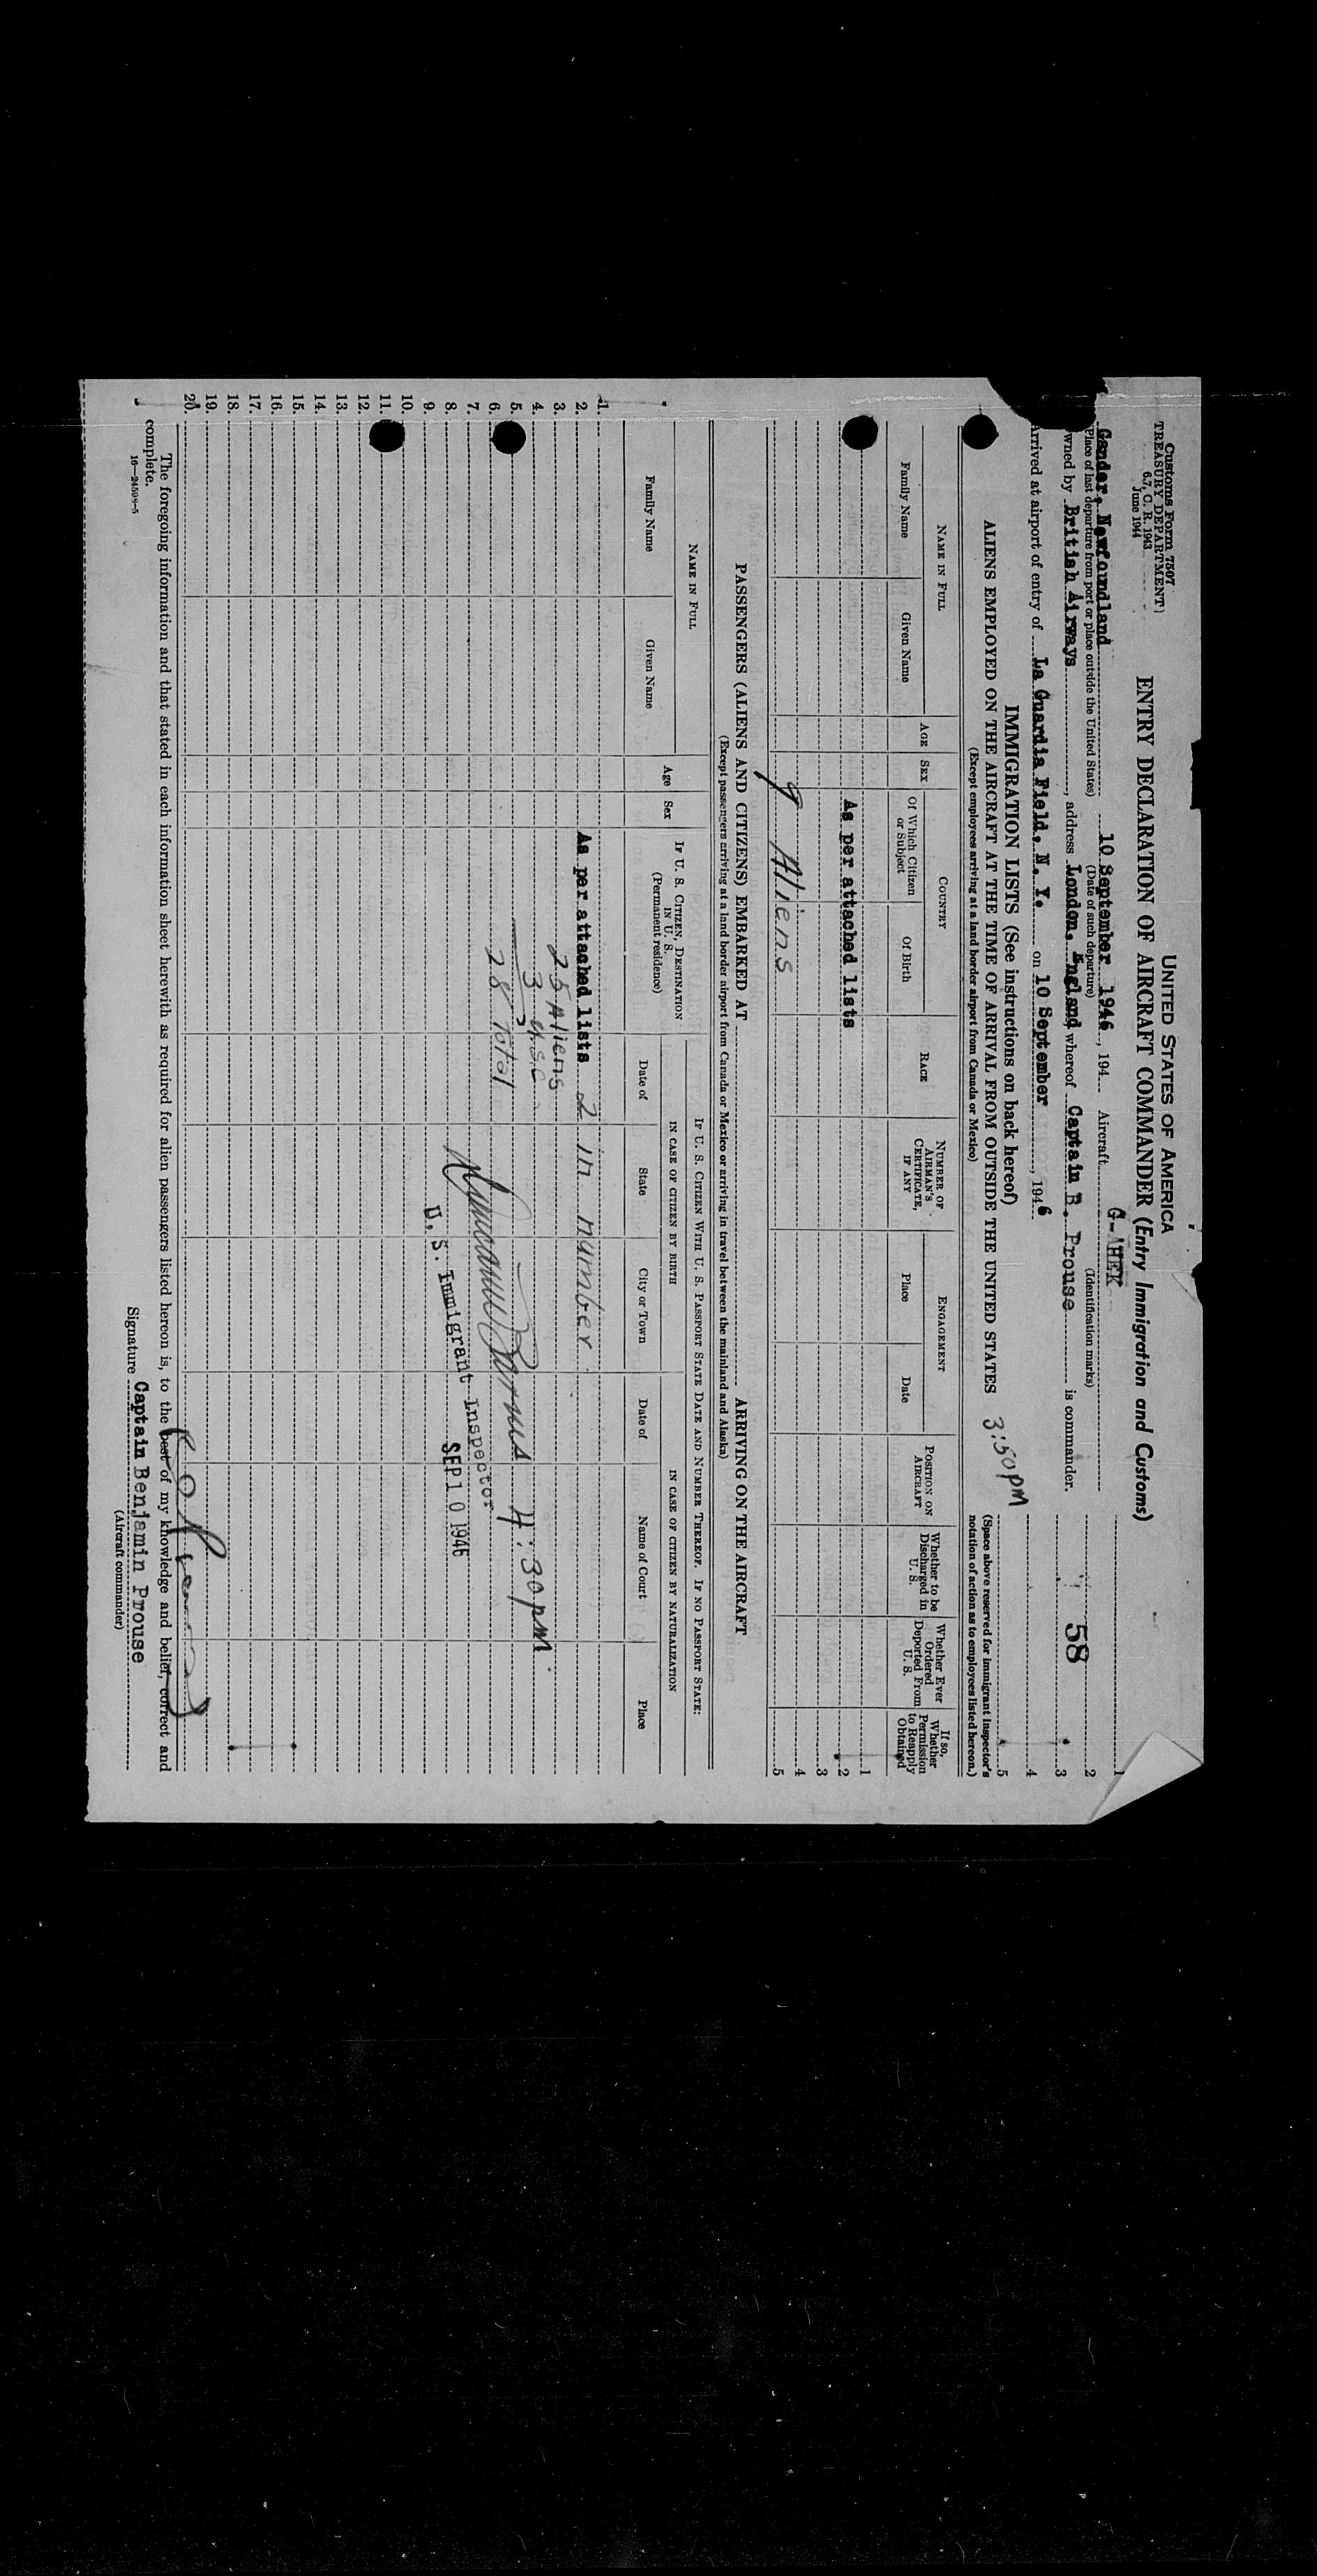 Customs Form 7507
TREASURY DEPARTMENT
6.7, C. R. 1943
June 1944
UNITED STATES OF AMERICA
ENTRY DECLARATION OF AIRCRAFT COMMANDER (Entry Immigration and Customs)
Gander, Newfoundland 10 September 1946, 194 Aircraft G-AHEK
(Place of last departure from port or place outside the United States) (Date of such departure) (Identification marks)
owned by British Airways, address London, England, whereof Captain B. Prouse is commander.
Arrived at airport of entry of La Guardia Field, N. Y. on 10 September, 1946
58
1
2
3
4
5
IMMIGRATION LISTS (See instructions on back hereof)
3:50 pm
(Space above reserved for immigrant inspector's notation of action as to employees listed hereon.)
ALIENS EMPLOYED ON THE AIRCRAFT AT THE TIME OF ARRIVAL FROM OUTSIDE THE UNITED STATES
(Except employees arriving at a land border airport from Canada or Mexico)
NAME IN FULL
Family Name Given Name
AGE
SEX
COUNTRY
Of Which Citizen or Subject Of Birth
RACE
NUMBER OF AIRMAN'S CERTIFICATE, IF ANY
ENGAGEMENT
Place Date
POSITION ON AIRCRAFT
Whether to be Discharged in U. S.
Whether Ever Ordered Deported From U. S.
If so, Whether Permission to Reapply Obtained
1
As per attached lists 2
3
4
9 Aliens 5
PASSENGERS (ALIENS AND CITIZENS) EMBARKED AT ARRIVING ON THE AIRCRAFT
(Except passengers arriving at a land border airport from Canada or Mexico or arriving in travel between the mainland and Alaska)
NAME IN FULL
Family Name Given Name
Age
Sex
IF U. S. CITIZEN, DESTINATION IN U. S.
(Permanent residence)
IF U. S. CITIZEN WITH U. S. PASSPORT STATE DATE AND NUMBER THEREOF. IF NO PASSPORT STATE:
IN CASE OF CITIZEN BY BIRTH IN CASE OF CITIZEN BY NATURALIZATION
Date of State City or Town Date of Name of Court Place
1.
2. As per attached lists 2 in number
3. 25 Aliens
4. 3 U.S.C.
5. 4:30 pm.
6. 28 Total
7. U. S. Immigrant Inspector
8. SEP 10 1946
9.
10.
11.
12.
13.
14.
15.
16.
17.
18.
19.
20.
The foregoing information and that stated in each information sheet herewith as required for alien passengers listed hereon is, to the best of my knowledge and belief, correct and
complete.
16—24598-5
Signature Captain Benjamin Prouse
(Aircraft commander)